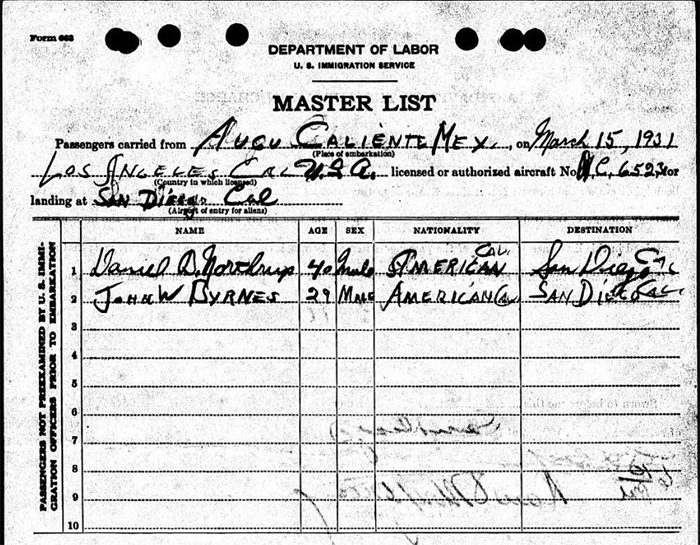 Form 663
DEPARTMENT OF LABOR
U. S. IMMIGRATION SERVICE
MASTER LIST
Passengers carried from AUGU CALIENTE MEX., on March 15, 1931
(Place of embarkation)
LOS ANGELES CAL U.S.A. licensed or authorized aircraft No. N.C. 6523 for
(Country in which licensed)
landing at SAN DIEGO Cal
(Airport of entry for aliens)
PASSENGERS NOT PREEXAMINED BY U. S. IMMI-
GRATION OFFICERS PRIOR TO EMBARKATION
NAME AGE SEX NATIONALITY DESTINATION
1 Daniel D. Northrup 40 Male AMERICAN CAL. San Diego Cal
2 JOHN W BYRNES 29 MALE AMERICAN Cal SAN DIEGO CAL.
3
4
5
6
7
8
9
10